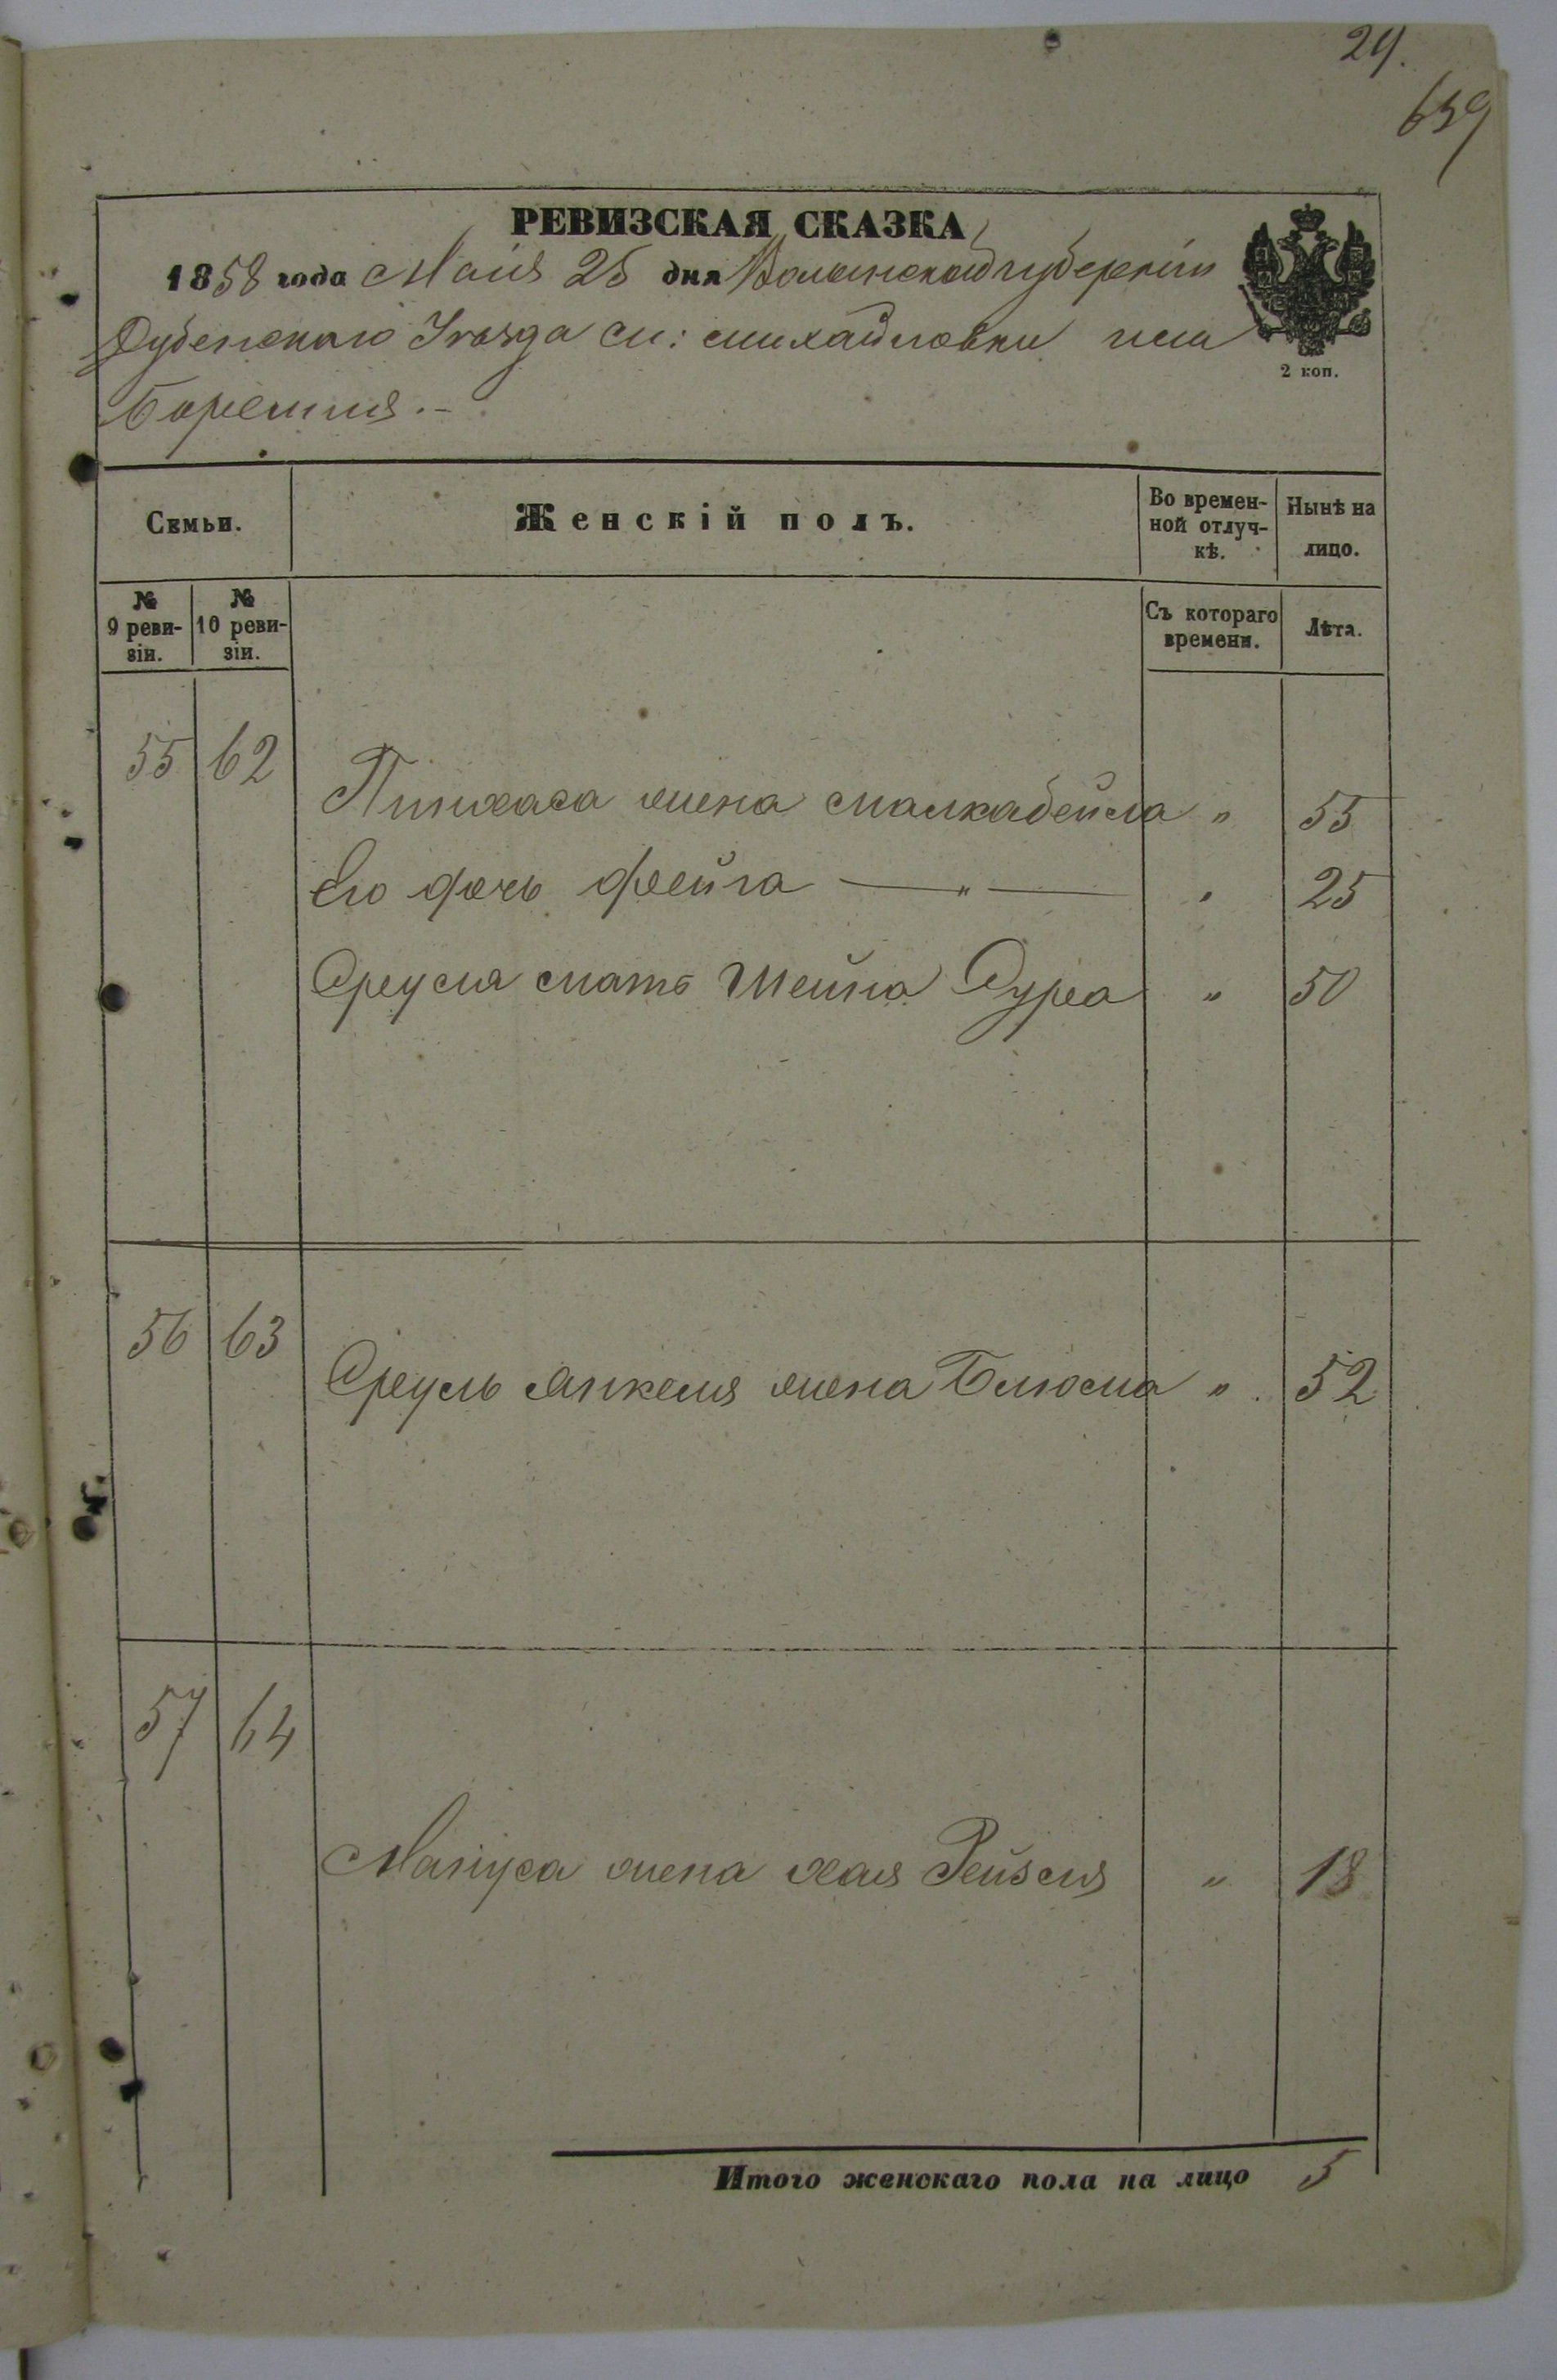 29.
639
РЕВИЗСКАЯ СКАЗКА
1858 года Маія 25 дня Волынской губерніи
Дубенскаго Уѣзда м: Михайловки или
Боремля.-
Семьи.
Женскій полъ.
Во времен-
ной отлуч-
кѣ.
Нынѣ на
лицо.
№
9 реви-
зіи.
№
10 реви-
зіи.
Съ котораго
времени.
Лѣта.
2 коп.
55 62
Пинхаса жена Малкабейла " 55
Его дочь Фейга — " — " 25
Сруля мать Шейна Сура " 50
56 63
Сруль Янкеля жена Блюма " 52
57 64
Мануса жена Хая Рейзля " 18
Итого женскаго пола на лицо 5